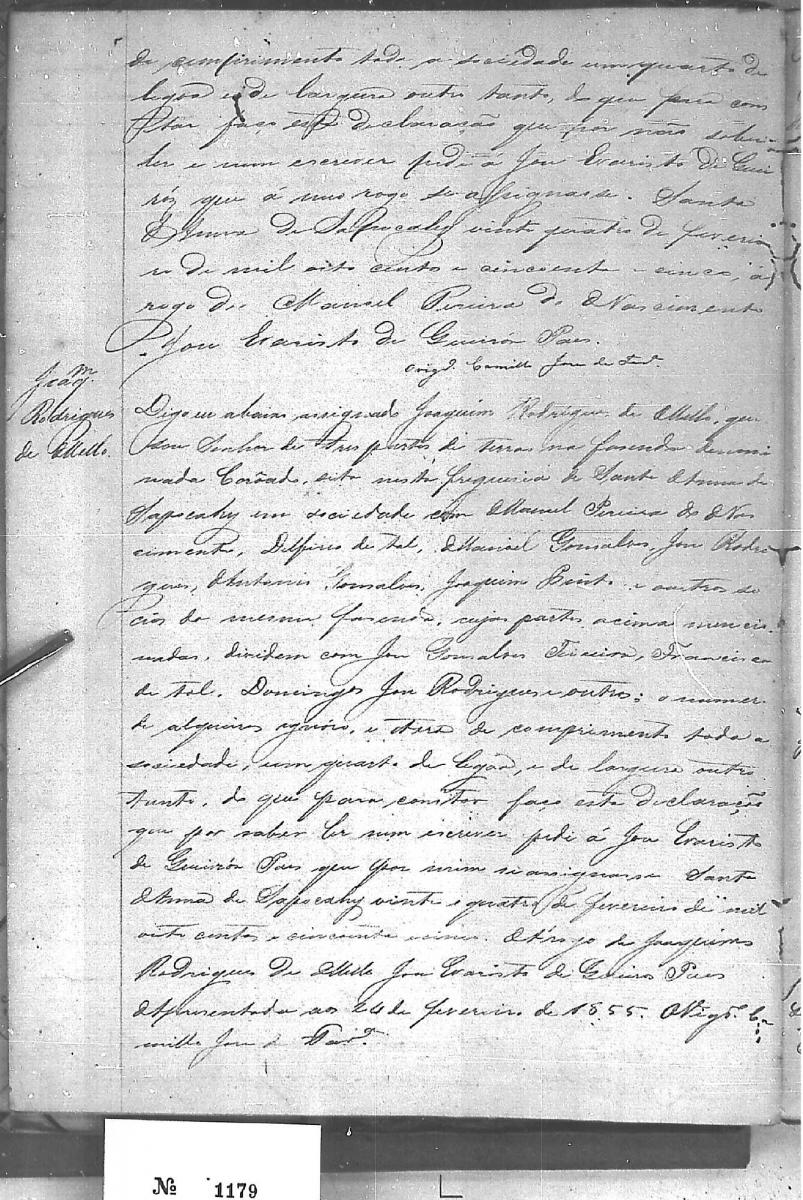 de cumprimento toda a sociedade um quarto de
legoa e de largura outro tanto, do que para cons
tar faço esta declaração que por não saber
ler e num escrever pedi a Jose Evaristo de Guei
rós que á meu rogo se assignasse. Santa
Anna de Sapucahy vinte quatro de feverei
ro de mil oito centos e cincoenta e cinco, a
rogo de Manoel Pereira do Nascimento
Jose Evaristo de Gueirós Paes.
Vigr. Camillo Jose de
Joaqm.
Rodrigues
de Mello.
Digo eu abaixo assignado Joaquim Rodrigues de Mello, que
sou Senhor de tres partes de terras na fasenda denomi
nada Corôado, sita nesta freguesia de Santa Anna de
Sapocahy em sociedade com Manoel Pereira do Nas
cimento, de tal, Manoel Gonsalves, Jose Rodri
gues, Antonio Gonsalves, Joaquim Pinto e outros so
cios da mesma fasenda, cujas partes acima mencio
nadas, dividem com Jose Gonsalves Teixeira, Francisco
de tal, Domingos Jose Rodrigues e outros: o numero
de alqueires ignoro, e terá de comprimento toda a
sociedade, um quarto de legoa, e de largura outro
tanto, do que para constar faço esta declaração
que por saber ler num escrever pedi á Jose Evaristo
de Gueirós Paes que por mim se assignasse Santa
Anna de Sapocahy vinte e quatro de fevereiro de mil
oito centos e cincoenta e cinco. A rogo de Joaquim
Rodrigues de Mello Jose Evaristo de Gueiros Paes
Apresentada aos 24 de fevereiro de 1855. O Vigr. Ca
millo Jose de
№ 1179